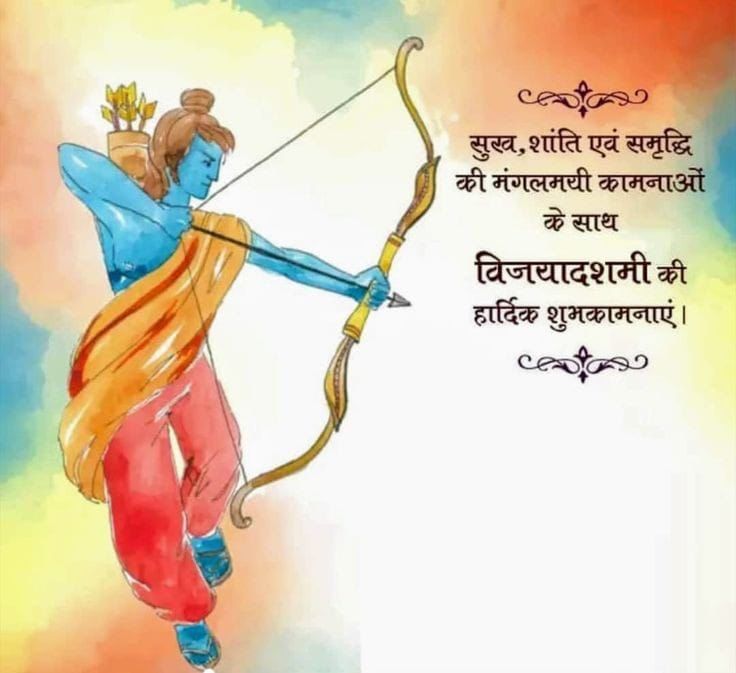 सुख,शांति एवं समृद्धि
की मंगलमयी कामनाओं
के साथ
विजयादशमी की
हार्दिक शुभकामनाएं।